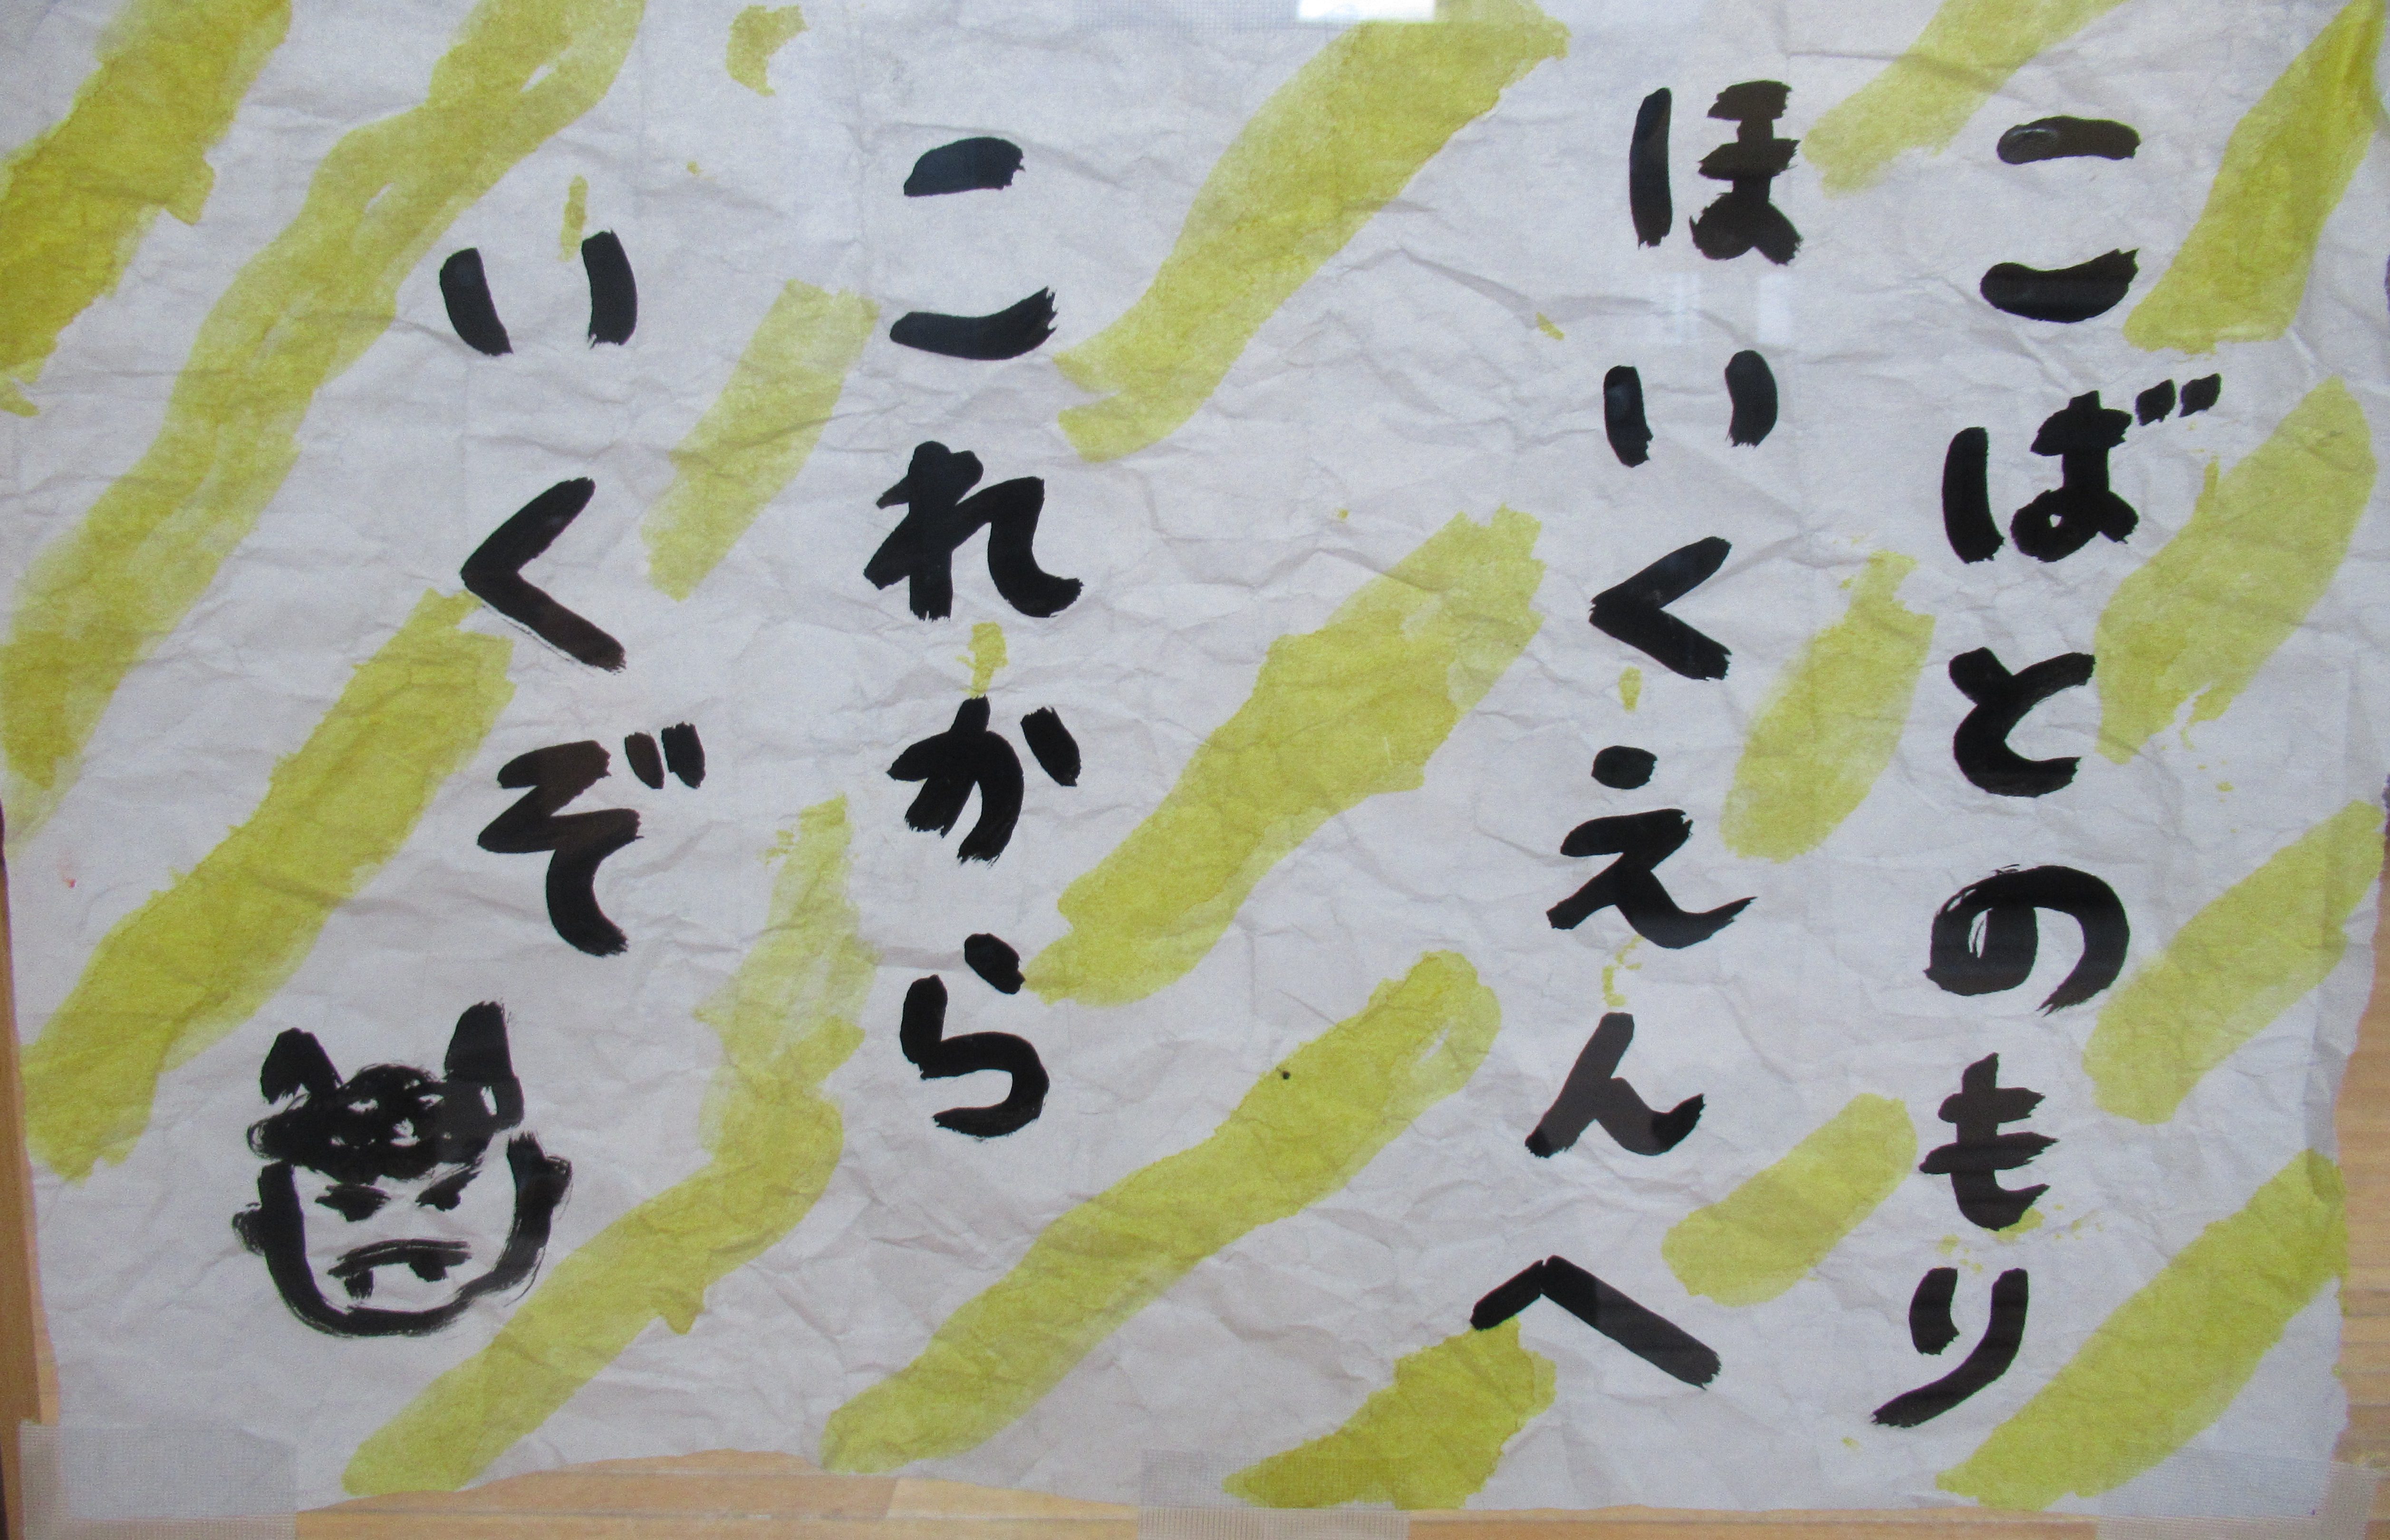 こばとのもり
ほいくえんへ
これから
いくぞ